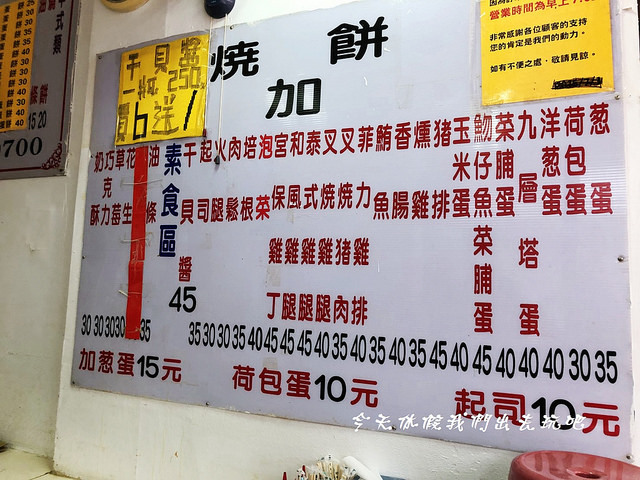 燒餅
加
干貝醬
一杯250
買6送1
營業時間為早上
非常感謝各位顧客的支持
您的肯定是我們的動力。
如有不便之處，敬請見諒。
葱蛋 35
荷包蛋 30
洋葱蛋 40
九層塔蛋 40
菜脯蛋 40
魩仔魚菜脯蛋 45
玉米蛋 40
豬排 45
燻雞 35
香腸 40
鮪魚 35
菲力雞排 40
叉燒豬肉 35
叉燒雞腿 40
泰式雞腿 45
和風雞腿 45
宮保雞丁 45
泡菜 40
培根 35
肉鬆 30
火腿 30
起司 35
干貝醬 45
素食區
油條 35
花生 30
草莓 30
巧克力 30
奶酥 30
加葱蛋15元
荷包蛋10元
起司10元
今天休假我們出去玩吧